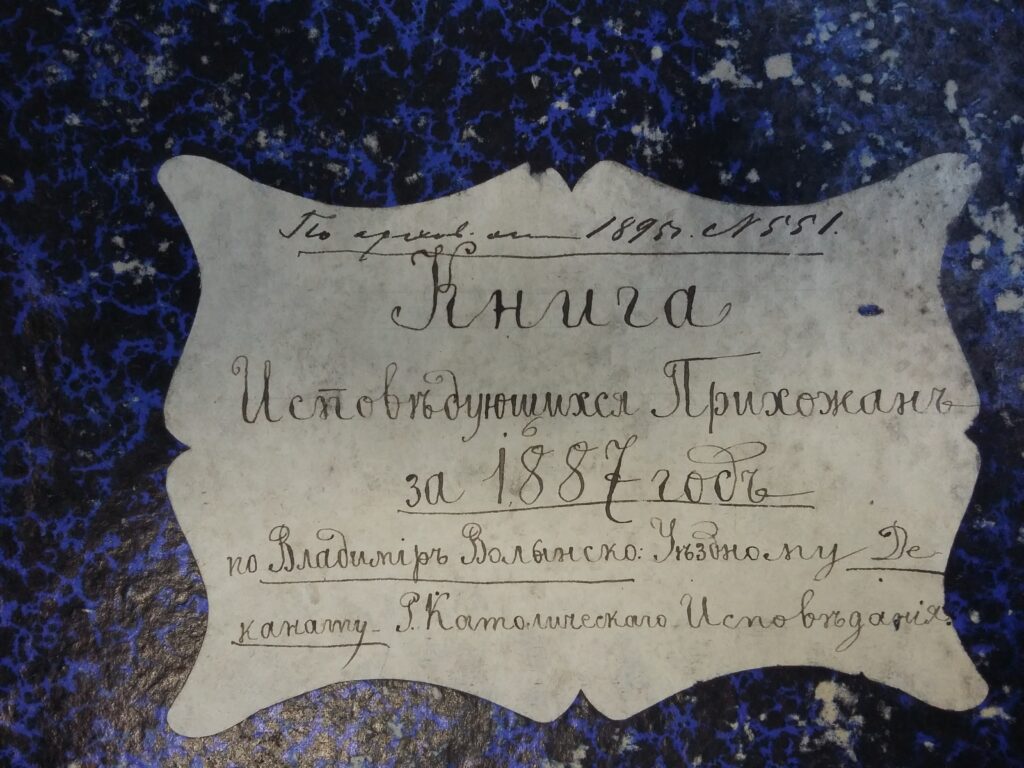 По архив. оп 1895 г. N 551.
Книга
Исповѣдующихся Прихожанъ
за 1887 годъ
по Владиміръ Волынско: Уѣздному Де
канату Р. Католическаго Исповѣданія.